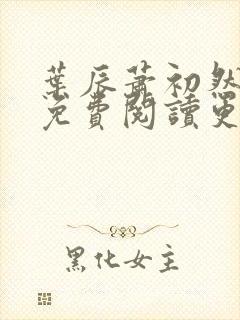 葉辰蕭初然
免費閱讀更
黑化女主